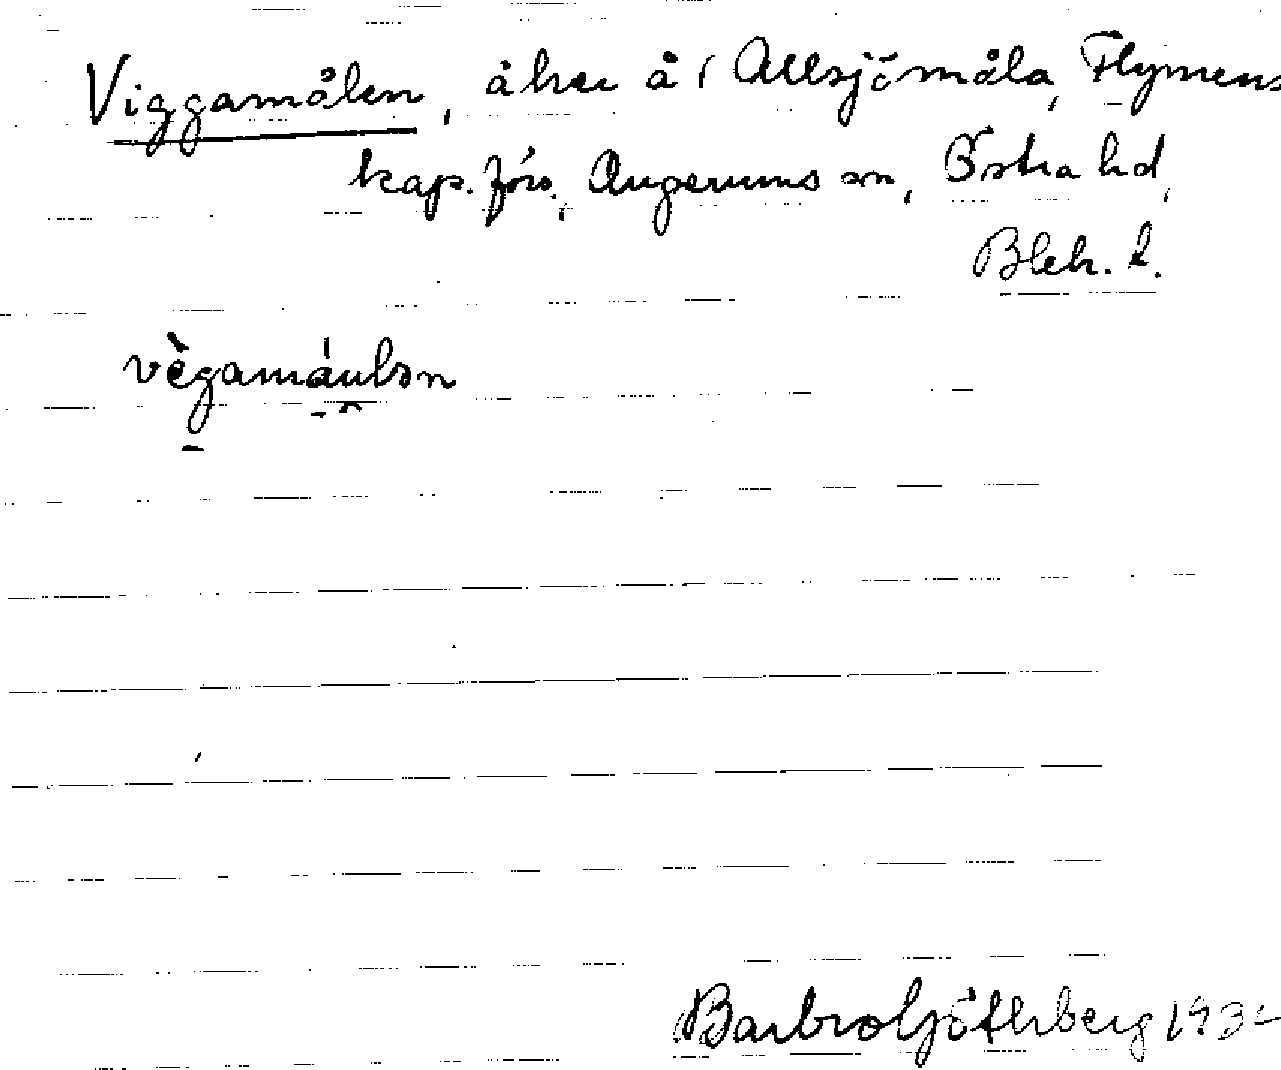 Viggamålen, åker å i Allsjömåla, Flymens
kap. förs., Augerums sn, Östra hd,
Blek. l.
vègamáulən
Barbro Götherberg 193